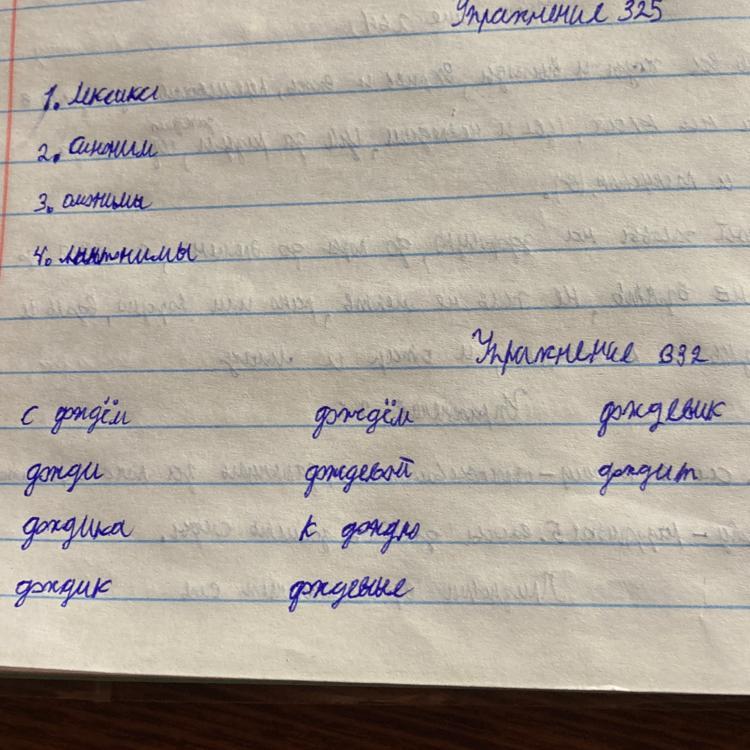 Упражнение 325
1. Лексика
2. Синоним
3. омонимы
4. антонимы
Упражнение 332
с дождём дождём дождевик
дожди дождевой дождит
дождика к дождю
дождик дождевые